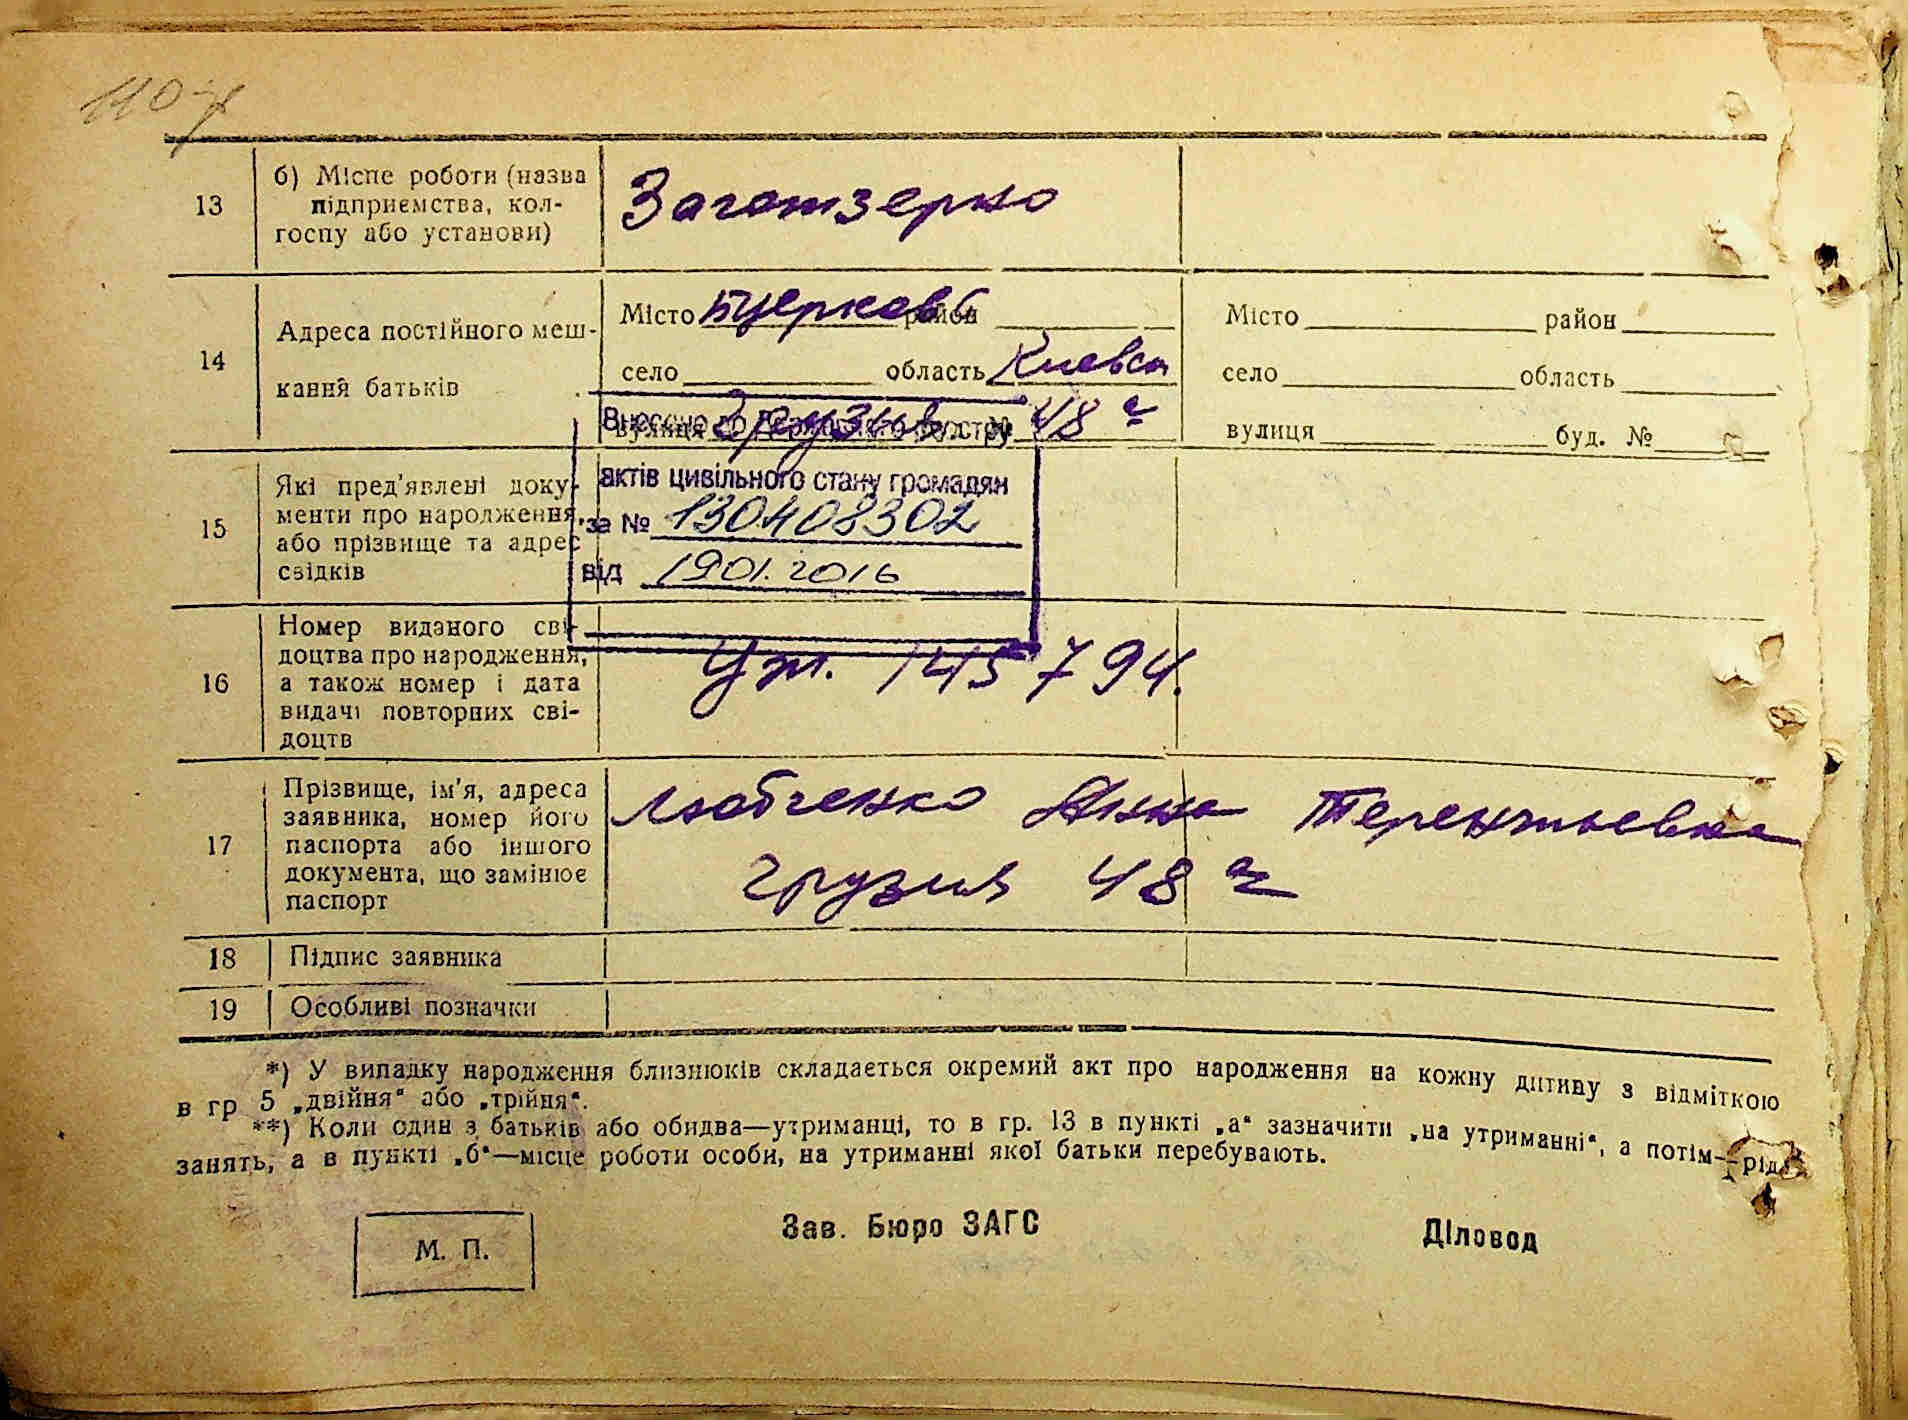 110
13
б) Місце роботи (назва
підприємства, кол-
госпу або установи)
Заготзерно
14
Адреса постійного меш-
кання батьків
Місто Бцерковь район
село область Киевск
вулиця Грузия № 48 а
Місто район
село область
вулиця буд. №
Внесено до Державного реєстру
актів цивільного стану громадян
за № 130408302
від 1901.2016
15
Які пред'явлені доку-
менти про народження,
або прізвище та адрес
свідків
16
Номер виданого сві-
доцтва про народження,
а також номер і дата
видачі повторних сві-
доцтв
145794.
17
Прізвище, ім'я, адреса
заявника, номер його
паспорта або іншого
документа, що замінює
паспорт
Любченко Анна Терентьевна
Грузия 48 а
18
Підпис заявника
19
Особливі позначки
*) У випадку народження близнюків складається окремий акт про народження на кожну дитину з відміткою
в гр 5 „двійня“ або „трійня“.
**) Коли один з батьків або обидва—утриманці, то в гр. 13 в пункті „а“ зазначити „на утриманні“, а потім—рід
занять, а в пункті „б“—місце роботи особи, на утриманні якої батьки перебувають.
М. П.
Зав. Бюро ЗАГС
Діловод